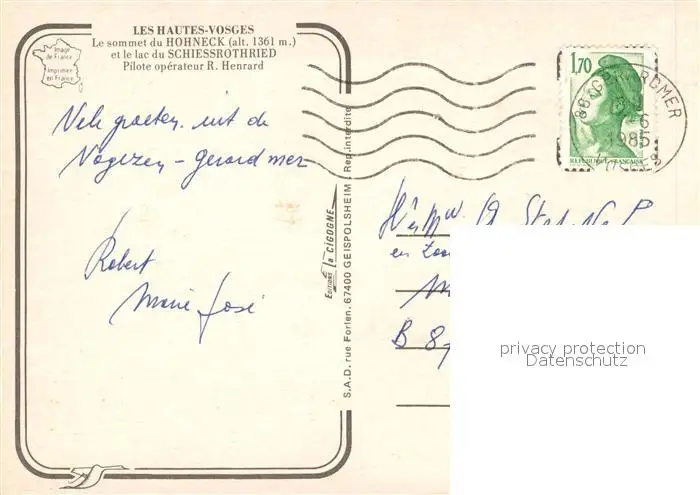 LES HAUTES-VOSGES
Le sommet du HOHNECK (alt. 1361 m.)
et le lac du SCHIESSROTHRIED
Pilote opérateur R. Henrard
Image
de France
Imprimée
en France
Vele groeten uit de
Vogezen - Gerardmer
Robert
Marie José
Editions La CIGOGNE
S.A.D. rue Forlen, 67400 GEISPOLSHEIM - Rep. interdite
1,70
REPUBLIQUE FRANÇAISE
88 GERARDMER
1985
VOSGES
en
B 8
privacy protection
Datenschutz